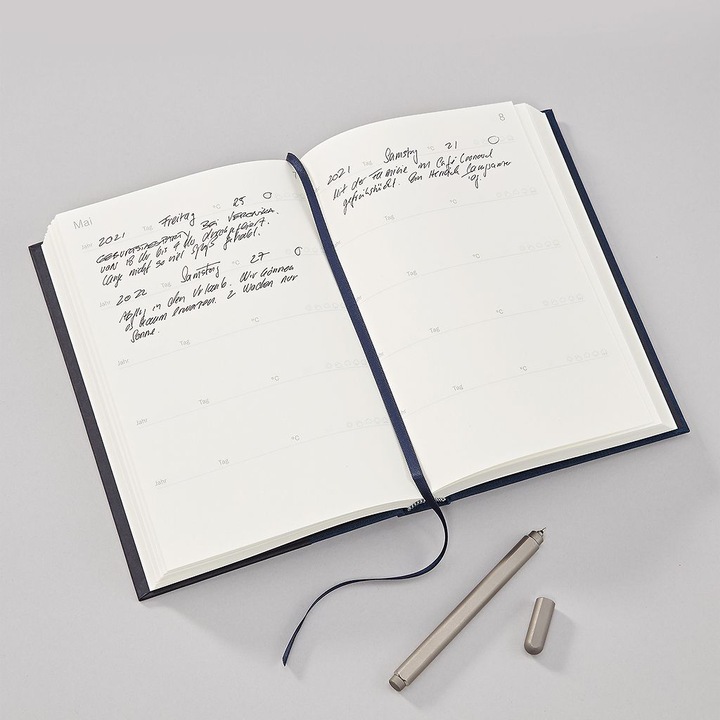 Mai
Jahr 2021 Tag Freitag °C 25
GEBURTSTAGSPARTY BEI VERONIKA.
von 18 Uhr bis 4 Uhr durchgefeiert.
Lange nicht so viel Spaß gehabt.
Jahr 2022 Tag Samstag °C 27
Abflug in den Urlaub. Wir können
es kaum erwarten. 2 Wochen nur
Sonne.
Jahr Tag °C
Jahr Tag °C
Jahr Tag °C
8
2021 Tag Samstag °C 21
Mit der Familie im Café Leonard
gefrühstückt. Ein Herrlich Langsamer
Tag
°C
Tag °C
Tag °C
Tag